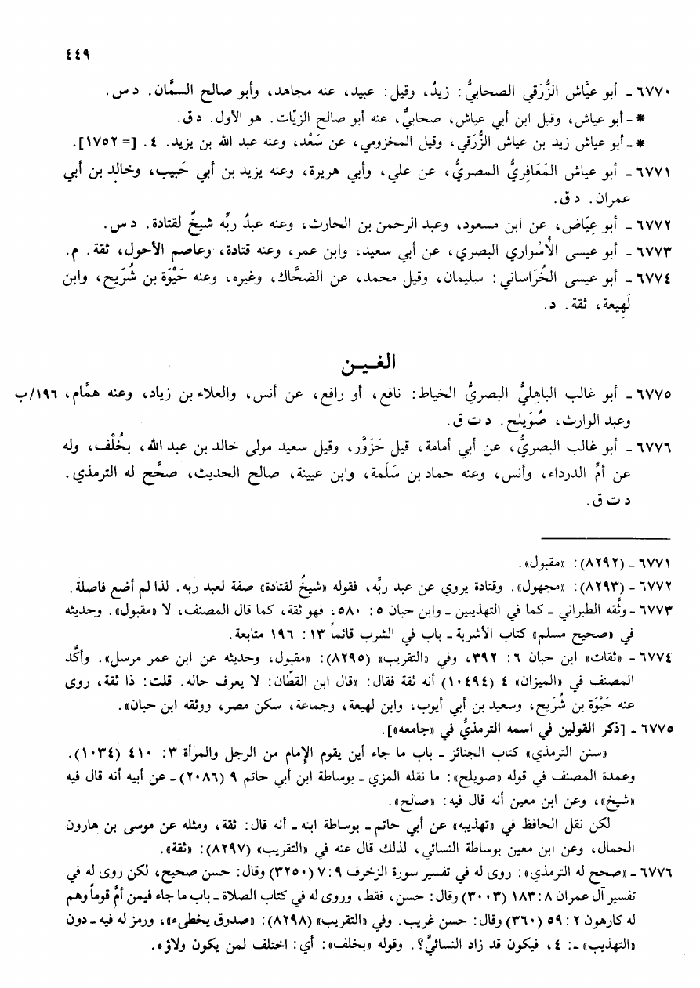 ٤٤٩
٦٧٧٠ ـ أبو عيَّاش الزُّرَقي الصحابيُّ: زيدٌ، وقيل: عبيد، عنه مجاهد، وأبو صالح السمَّان. د س.
* ـ أبو عياش، وقيل ابن أبي عياش، صحابيٌّ، عنه أبو صالح الزيَّات. هو الأول. د ق.
* ـ أبو عياش زيد بن عياش الزُّرَقي، وقيل المخزومي، عن سَعْد، وعنه عبد الله بن يزيد. ٤. [= ١٧٥٢].
٦٧٧١ ـ أبو عياش المَعَافِريُّ المصريُّ، عن علي، وأبي هريرة، وعنه يزيد بن أبي حَبيب، وخالد بن أبي
عمران. د ق.
٦٧٧٢ ـ أبو عِيَاض، عن ابن مسعود، وعبد الرحمن بن الحارث، وعنه عبدُ ربِّه شيخٌ لقتادة. د س.
٦٧٧٣ ـ أبو عيسى الأُسْواري البصري، عن أبي سعيد، وابن عمر، وعنه قتادة، وعاصم الأحول، ثقة. م.
٦٧٧٤ ـ أبو عيسى الخُرَاساني: سليمان، وقيل محمد، عن الضحَّاك، وغيره، وعنه حَيْوَة بن شُرَيح، وابن
لَهِيعة، ثقة. د.
الغـين
٦٧٧٥ ـ أبو غالب الباهليُّ البصريُّ الخياط: نافع، أو رافع، عن أنس، والعلاء بن زياد، وعنه همَّام، ١٩٦/ب
وعبد الوارث، صُوَيلح. د ت ق.
٦٧٧٦ ـ أبو غالب البصريُّ، عن أبي أمامة، قيل حَزَوَّر، وقيل سعيد مولى خالد بن عبد الله، بخُلْف، وله
عن أمِّ الدرداء، وأنس، وعنه حماد بن سَلَمة، وابن عيينة، صالح الحديث، صحَّح له الترمذي.
د ت ق.
٦٧٧١ ـ (٨٢٩٢): «مقبول».
٦٧٧٢ ـ (٨٢٩٣): «مجهول». وقتادة يروي عن عبد ربِّه، فقوله «شيخٌ لقتادة» صفة لعبد ربه. لذا لم أضع فاصلة.
٦٧٧٣ ـ وثَّقه الطبراني ـ كما في التهذيبين ـ وابن حبان ٥: ٥٨٠. فهو ثقة، كما قال المصنف، لا «مقبول». وحديثه
في «صحيح مسلم» كتاب الأشربة ـ باب في الشرب قائماً ١٣: ١٩٦ متابعة.
٦٧٧٤ ـ «ثقات» ابن حبان ٦: ٣٩٢، وفي «التقريب» (٨٢٩٥): «مقبول، وحديثه عن ابن عمر مرسل». وأكَّد
المصنف في «الميزان» ٤ (١٠٤٩٤) أنه ثقة فقال: «قال ابن القطَّان: لا يعرف حاله. قلت: ذا ثقة، روى
عنه حَيْوَة بن شُرَيح، وسعيد بن أبي أيوب، وابن لهيعة، وجماعة، سكن مصر، ووثقه ابن حبان».
٦٧٧٥ ـ [ذكر القولين في اسمه الترمذيُّ في «جامعه»].
«سنن الترمذي» كتاب الجنائز ـ باب ما جاء أين يقوم الإمام من الرجل والمرأة ٣: ٤١٠ (١٠٣٤).
وعمدة المصنف في قوله «صويلح»: ما نقله المزي ـ بوساطة ابن أبي حاتم ٩ (٢٠٨٦) ـ عن أبيه أنه قال فيه
«شيخ»، وعن ابن معين أنه قال فيه: «صالح».
لكن نقل الحافظ في «تهذيبه» عن أبي حاتم ـ بوساطة ابنه ـ أنه قال: ثقة، ومثله عن موسى بن هارون
الحمال، وعن ابن معين بوساطة النسائي، لذلك قال عنه في «التقريب» (٨٢٩٧): «ثقة».
٦٧٧٦ ـ «صحح له الترمذي»: روى له في تفسير سورة الزخرف ٩: ٧ (٣٢٥٠) وقال: حسن صحيح، لكن روى له في
تفسير آل عمران ٨: ١٨٣ (٣٠٠٣) وقال: حسن، فقط، وروى له في كتاب الصلاة ـ باب ما جاء فيمن أمَّ قوماً وهم
له كارهون ٢: ٥٩ (٣٦٠) وقال: حسن غريب. وفي «التقريب» (٨٢٩٨): «صدوق يخطىء»، ورمز له فيه ـ دون
«التهذيب» ـ: ٤، فيكون قد زاد النسائيَّ؟. وقوله «بخلف»: أي: اختلف لمن يكون ولاؤه.